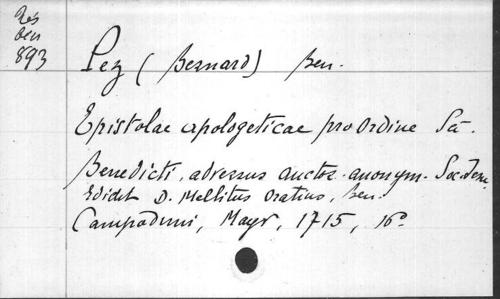 Rés
ben
893
Pez (Bernard) Ben.
Epistolae apologeticae pro Ordine Scti.
Benedicti, adversus auctor. anonym. Soc. Jesu.
Edidit D. Mellitus Oratius, Ben.
Campoduni, Mayr, 1715, 16°